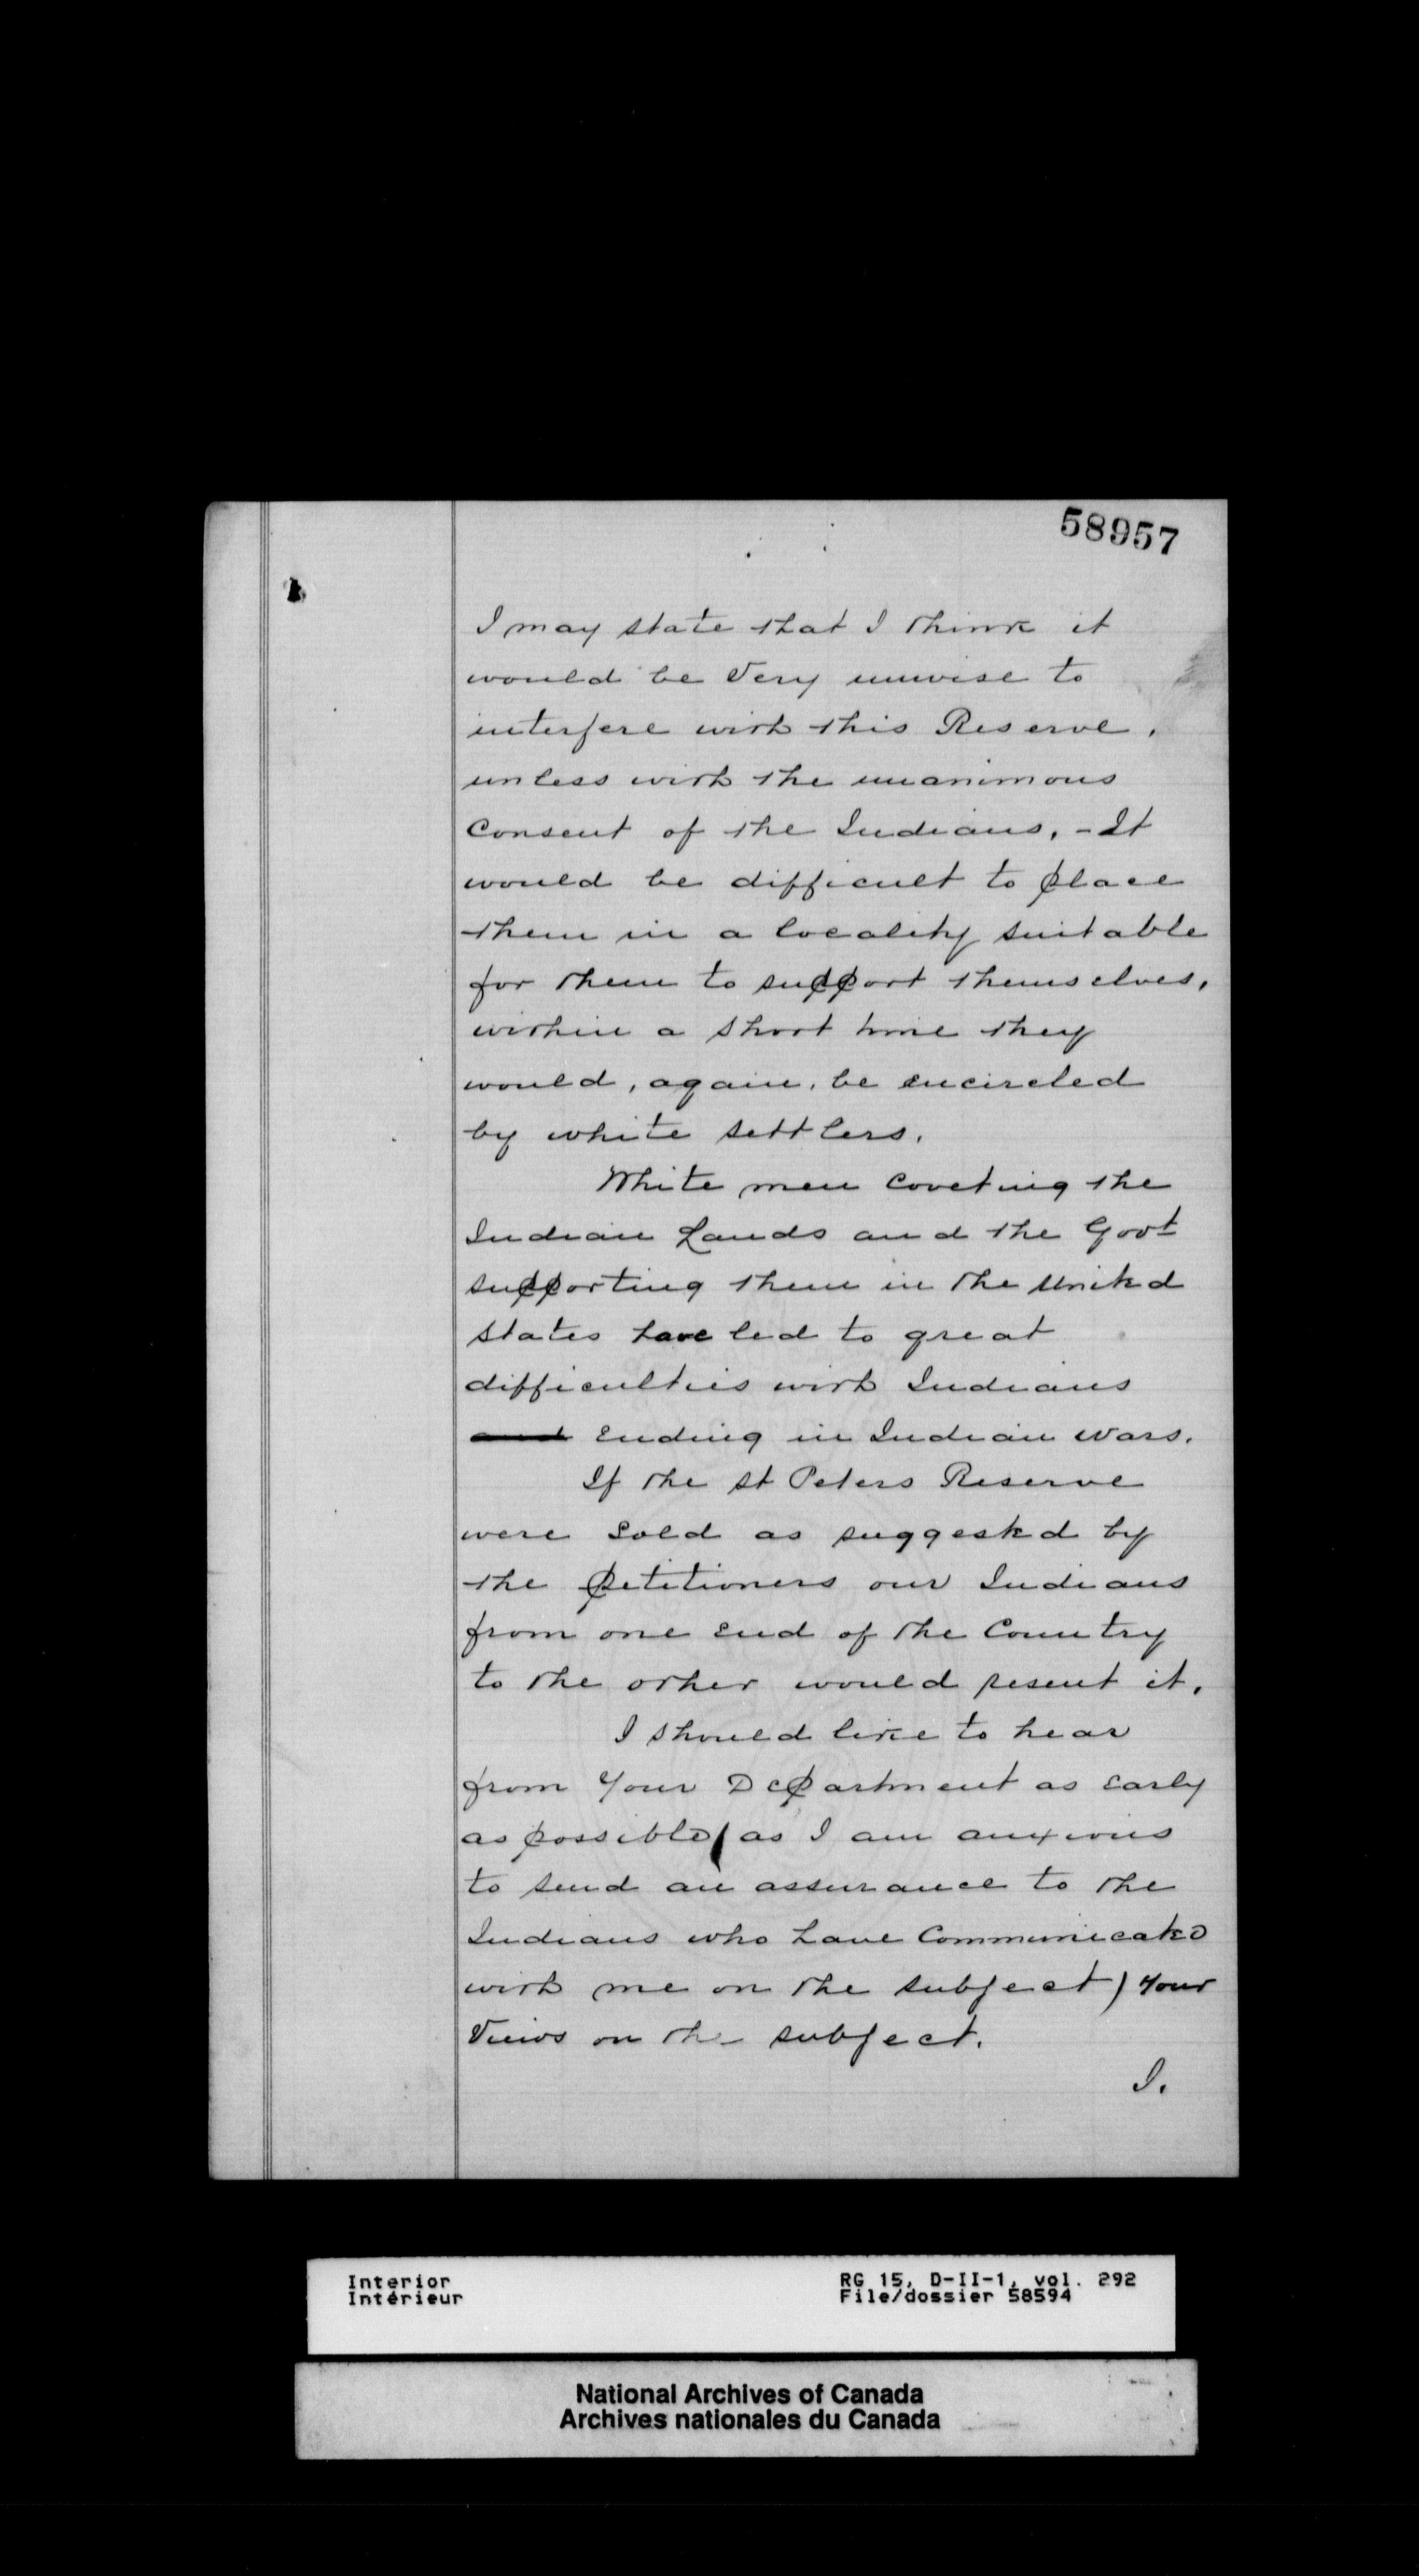 58957
I may state that I think it
would be Very unwise to
interfere with this Reserve,
unless with the unanimous
Consent of the Indians, - It
would be difficult to place
them in a locality suitable
for them to support themselves,
within a short time they
would, again, be encircled
by white settlers.
White men Coveting the
Indian Lands and the Govt
supporting them in the United
States have led to great
difficulties with Indians
and Ending in Indian Wars.
If the St Peters Reserve
were Sold as suggested by
the petitioners our Indians
from one End of the Country
to the other would resent it.
I should like to hear
from Your Department as Early
as possible (as I am anxious
to send an assurance to the
Indians who have Communicated
with me on the subject) Your
Views on the subject.
I.
Interior
Intérieur
RG 15, D-II-1, vol. 292
File/dossier 58594
National Archives of Canada
Archives nationales du Canada